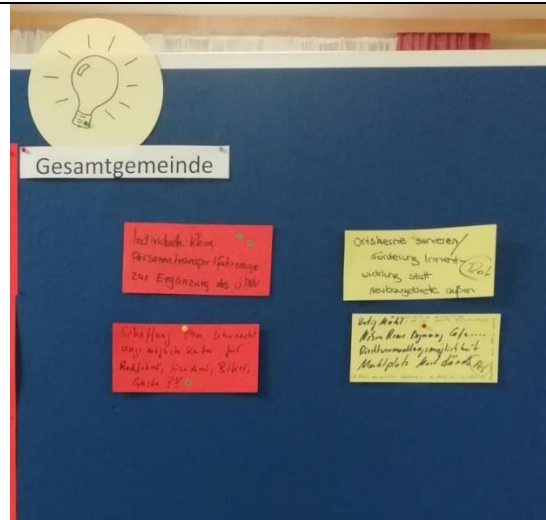 Gesamtgemeinde
Individuelle kleine
Personentransportfahrzeuge
zur Ergänzung des ÖPNV
Schaffung von Übernacht
ungsmöglichkeiten für
Radfahrer, Wanderer, Biker,
Gäste
Ortskerne sanieren/
Förderung Innenent-
wicklung statt
Neubaugebiete außen
Rot
Café....
Direktvermarktungsmöglichkeit
Marktplatz
Rot